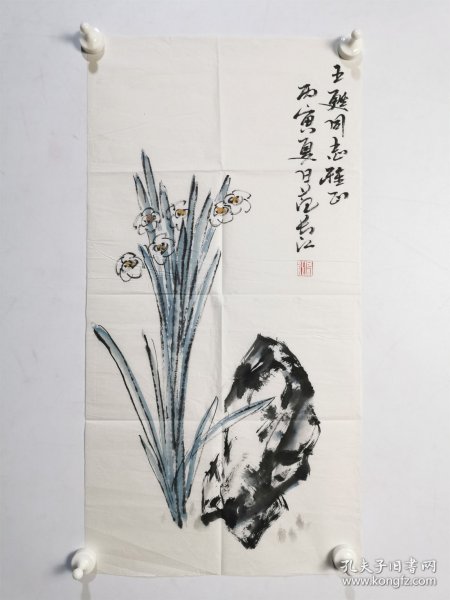 王 同志雅正
丙寅夏日范长江
孔夫子旧书网
www.kongfz.com